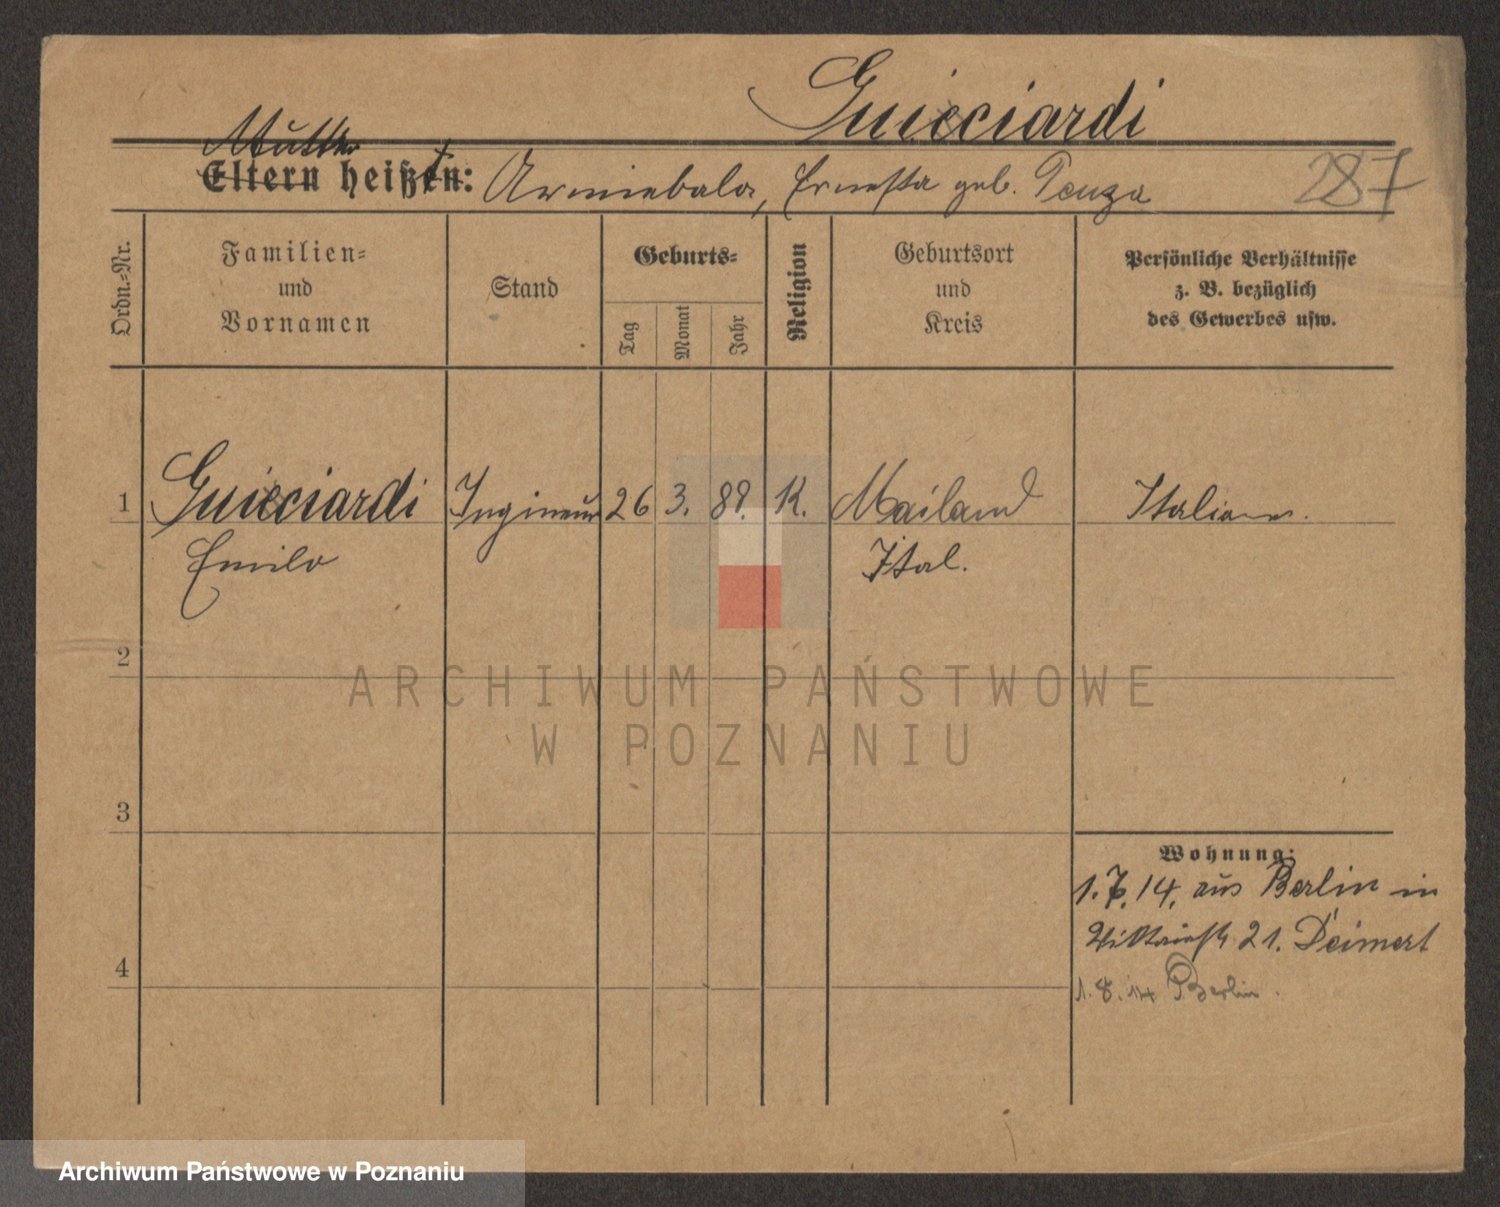 Guicciardi
Mutter
Eltern heißt: Ernesta geb. Penza
287
Ordn.-Nr.
Familien-
und
Vornamen
Stand
Geburts-
Tag
Monat
Jahr
Religion
Geburtsort
und
Kreis
Persönliche Verhältnisse
z. B. bezüglich
des Gewerbes usw.
1 Guicciardi Ingineur 26 3. 89. K. Mailand Italiener.
Emilo Ital.
2
3
Wohnung:
1.7.14. aus Berlin in
Viktoriastr 21. Deimert
4
1.8.14 Berlin.
ARCHIWUM PAŃSTWOWE
W POZNANIU
Archiwum Państwowe w Poznaniu